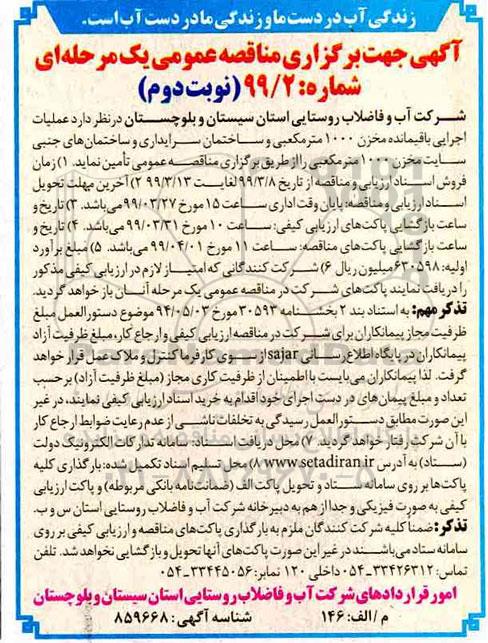 زندگی آب در دست ما و زندگی ما در دست آب است.
آگهی جهت برگزاری مناقصه عمومی یک مرحله‌ای
شماره: ۹۹/۲ (نوبت دوم)
شرکت آب و فاضلاب روستایی استان سیستان و بلوچستان در نظر دارد عملیات
اجرایی باقیمانده مخزن ۱۰۰۰ مترمکعبی و ساختمان سرایداری و ساختمان‌های جنبی
سایت مخزن ۱۰۰۰ مترمکعبی را از طریق برگزاری مناقصه عمومی تأمین نماید. ۱) زمان
فروش اسناد ارزیابی و مناقصه از تاریخ ۹۹/۳/۸ لغایت ۹۹/۳/۱۳ ۲) آخرین مهلت تحویل
اسناد ارزیابی و مناقصه: پایان وقت اداری ساعت ۱۵ مورخ ۹۹/۰۳/۲۷ می‌باشد. ۳) تاریخ و
ساعت بازگشایی پاکت‌های ارزیابی کیفی: ساعت ۱۰ مورخ ۹۹/۰۳/۳۱ می‌باشد. ۴) تاریخ و
ساعت بازگشایی پاکت‌های مناقصه: ساعت ۱۱ مورخ ۹۹/۰۴/۰۱ می‌باشد. ۵) مبلغ برآورد
اولیه: ۶۳۰۵۹۸ میلیون ریال ۶) شرکت کنندگانی که امتیاز لازم در ارزیابی کیفی مذکور
را دریافت نمایند پاکت‌های شرکت در مناقصه عمومی یک مرحله آنان باز خواهد گردید.
تذکر مهم: به استناد بند ۲ بخشنامه ۳۰۵۹۳ مورخ ۹۴/۰۵/۰۳ موضوع دستورالعمل مبلغ
ظرفیت مجاز پیمانکاران برای شرکت در مناقصه ارزیابی کیفی و ارجاع کار، مبلغ ظرفیت آزاد
پیمانکاران در پایگاه اطلاع رسانی sajar از سوی کارفرما کنترل و ملاک عمل قرار خواهد
گرفت. لذا پیمانکاران می‌بایست با اطمینان از ظرفیت کاری مجاز (مبلغ ظرفیت آزاد) بر حسب
تعداد و مبلغ پیمان‌های در دست اجرای خود اقدام به خرید اسناد ارزیابی کیفی نمایند، در غیر
این صورت مطابق دستورالعمل رسیدگی به تخلفات ناشی از عدم رعایت ضوابط ارجاع کار
با آن شرکت رفتار خواهد گردید. ۷) محل دریافت اسناد: سامانه تدارکات الکترونیک دولت
(ستاد) به آدرس www.setadiran.ir ۸) محل تسلیم اسناد تکمیل شده: بارگذاری کلیه
پاکت‌ها بر روی سامانه ستاد و تحویل پاکت الف (ضمانت‌نامه بانکی مربوطه) و پاکت ارزیابی
کیفی به صورت فیزیکی و جدا از هم به دبیرخانه شرکت آب و فاضلاب روستایی استان س و ب.
تذکر: ضمناً کلیه شرکت کنندگان ملزم به بارگذاری پاکت‌های مناقصه و ارزیابی کیفی بر روی
سامانه ستاد می‌باشند در غیر این صورت پاکت‌های آنها تحویل و بازگشایی نخواهد شد. تلفن
تماس: ۳۳۴۲۶۳۱۲-۰۵۴ داخلی ۱۲۰ نمابر: ۳۳۴۴۵۰۵۶-۰۵۴
امور قراردادهای شرکت آب و فاضلاب روستایی استان سیستان و بلوچستان
م/الف: ۱۴۶ شناسه آگهی: ۸۵۹۶۶۸